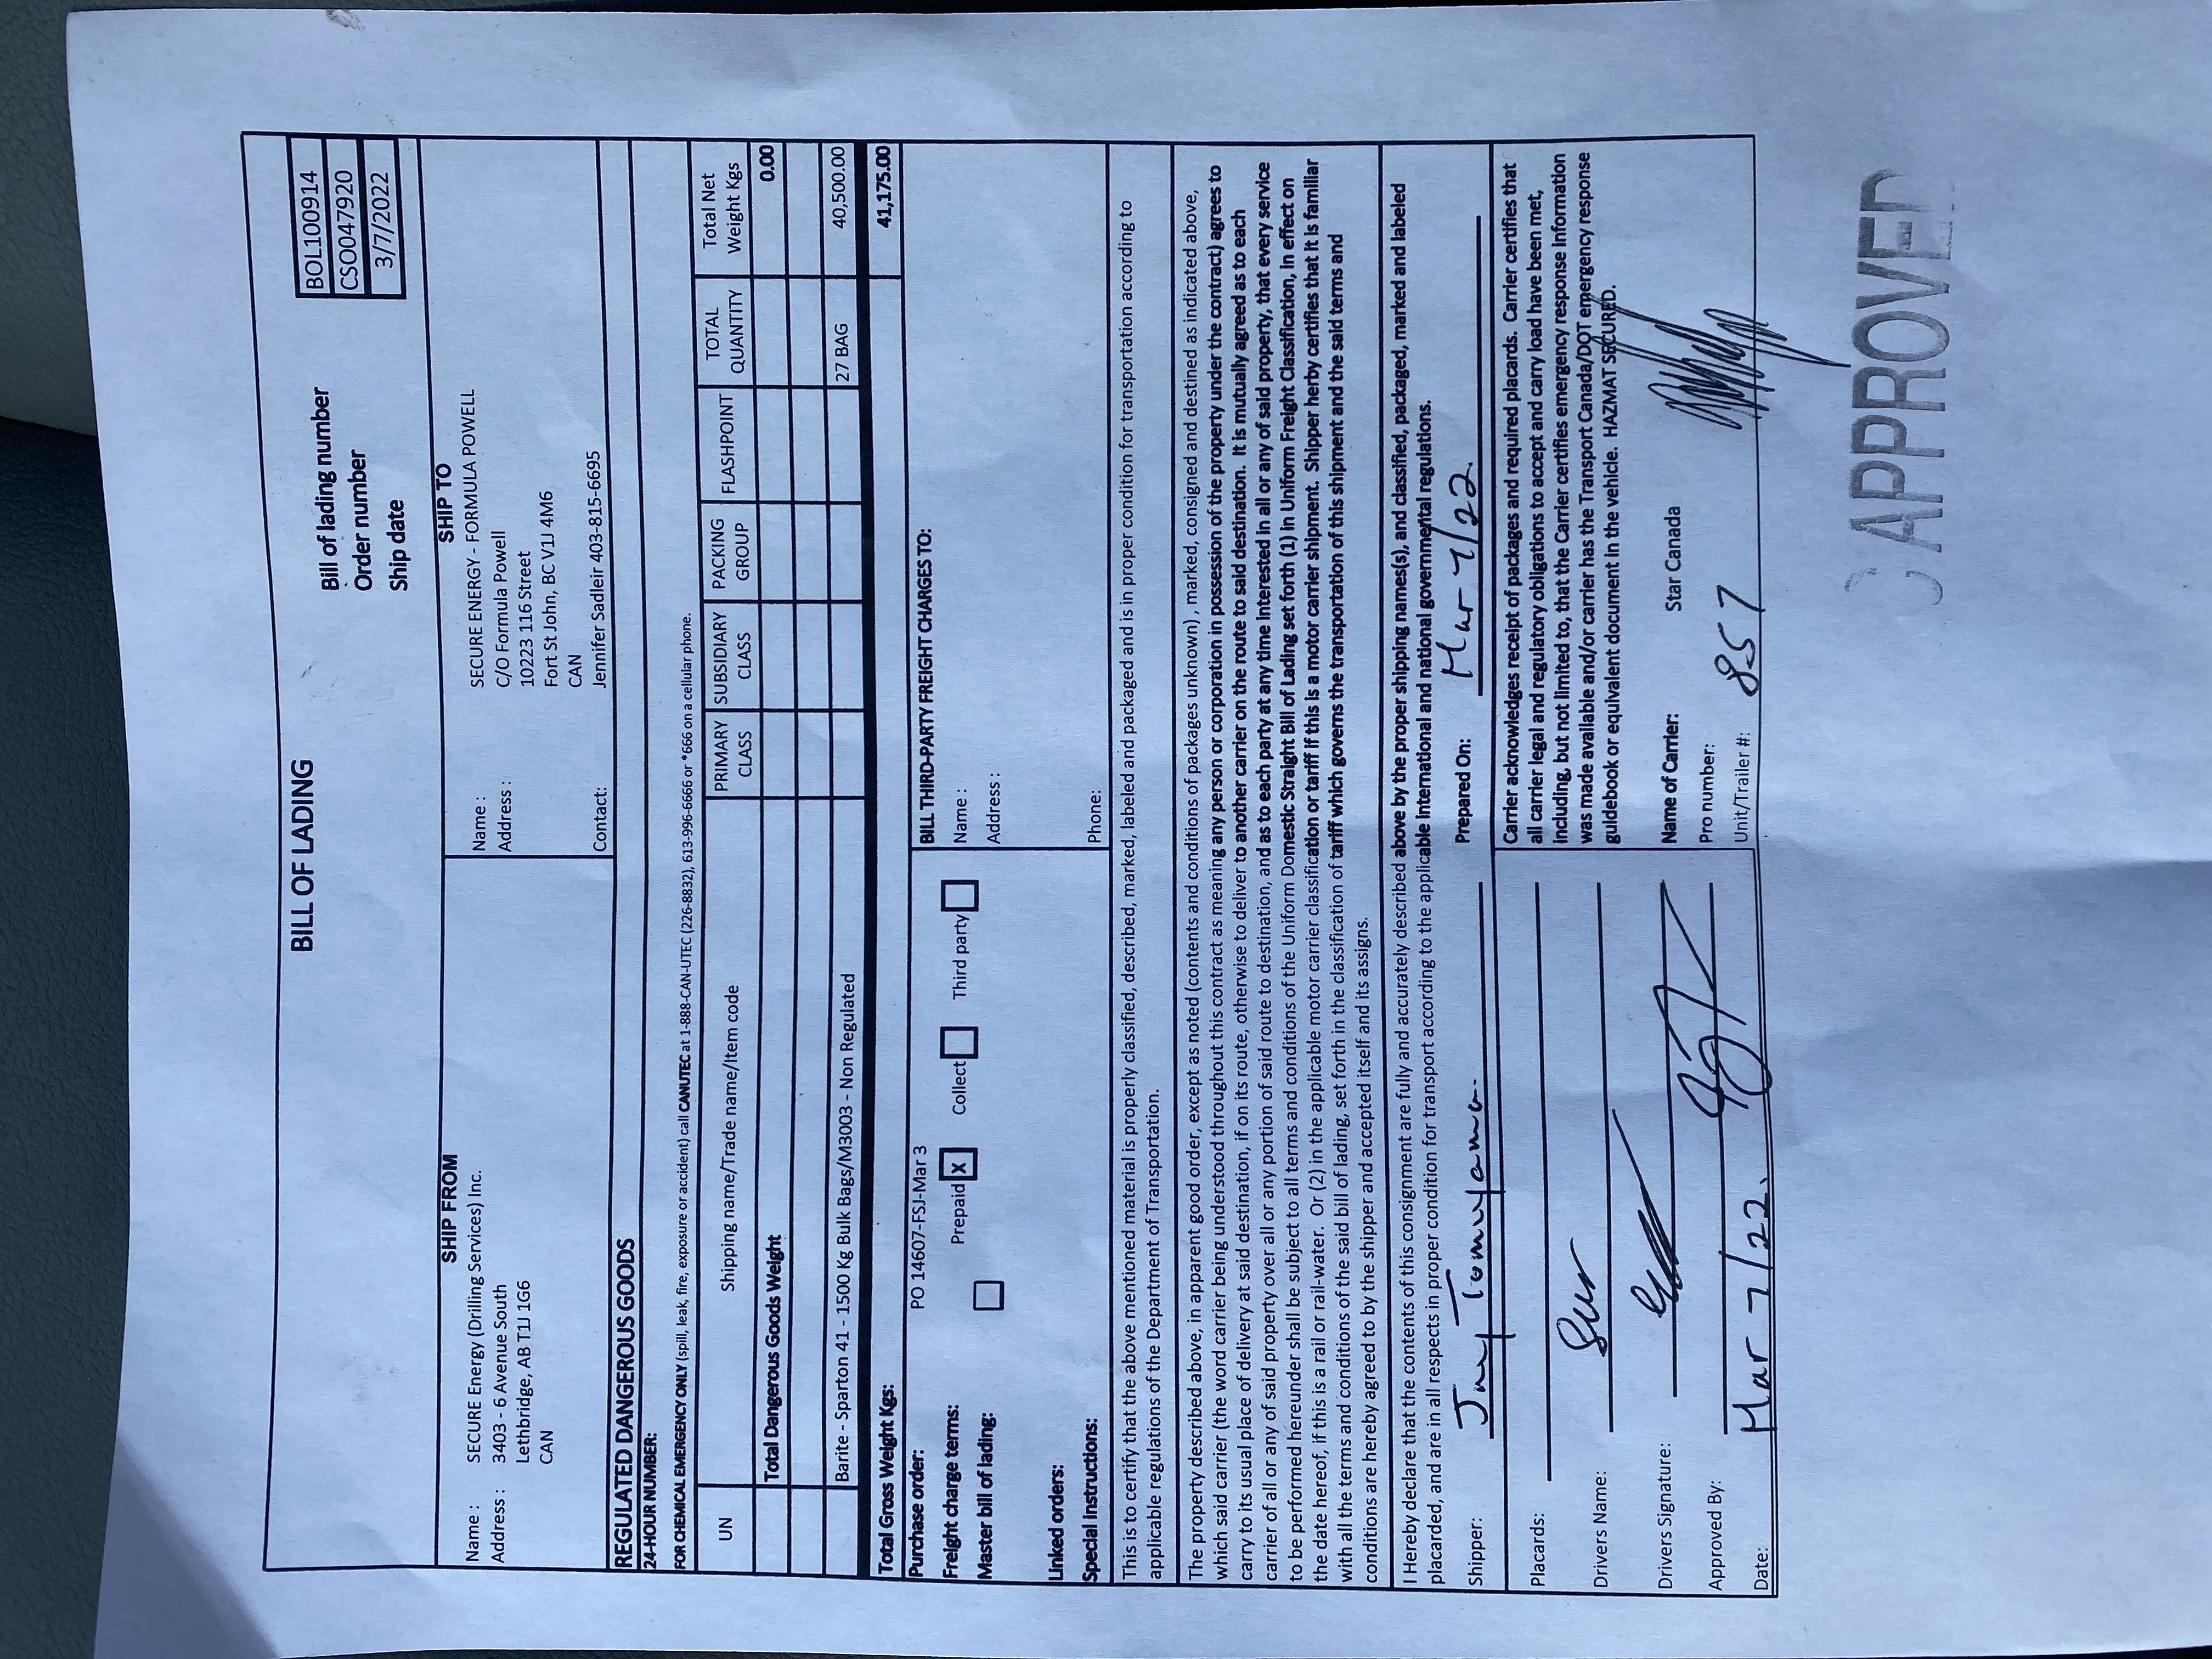 BILL OF LADING
Bill of lading number BOL100914
Order number CSO047920
Ship date 3/7/2022
SHIP FROM
Name : SECURE Energy (Drilling Services) Inc.
Address : 3403 - 6 Avenue South
Lethbridge, AB T1J 1G6
CAN
SHIP TO
Name : SECURE ENERGY - FORMULA POWELL
Address : C/O Formula Powell
10223 116 Street
Fort St John, BC V1J 4M6
CAN
Contact: Jennifer Sadleir 403-815-6695
REGULATED DANGEROUS GOODS
24-HOUR NUMBER:
FOR CHEMICAL EMERGENCY ONLY (spill, leak, fire, exposure or accident) call CANUTEC at 1-888-CAN-UTEC (226-8832), 613-996-6666 or *666 on a cellular phone.
UN Shipping name/Trade name/Item code PRIMARY CLASS SUBSIDIARY CLASS PACKING GROUP FLASHPOINT TOTAL QUANTITY Total Net Weight Kgs
Total Dangerous Goods Weight 0.00
Barite - Sparton 41 - 1500 Kg Bulk Bags/M3003 - Non Regulated 27 BAG 40,500.00
Total Gross Weight Kgs: 41,175.00
Purchase order: PO 14607-FSJ-Mar 3
Freight charge terms: Prepaid X Collect Third party
Master bill of lading:
Linked orders:
Special instructions:
BILL THIRD-PARTY FREIGHT CHARGES TO:
Name :
Address :
Phone:
This is to certify that the above mentioned material is properly classified, described, marked, labeled and packaged and is in proper condition for transportation according to
applicable regulations of the Department of Transportation.
The property described above, in apparent good order, except as noted (contents and conditions of packages unknown) , marked, consigned and destined as indicated above,
which said carrier (the word carrier being understood throughout this contract as meaning any person or corporation in possession of the property under the contract) agrees to
carry to its usual place of delivery at said destination, if on its route, otherwise to deliver to another carrier on the route to said destination. It is mutually agreed as to each
carrier of all or any of said property over all or any portion of said route to destination, and as to each party at any time interested in all or any of said property, that every service
to be performed hereunder shall be subject to all terms and conditions of the Uniform Domestic Straight Bill of Lading set forth (1) in Uniform Freight Classification, in effect on
the date hereof, if this is a rail or rail-water. Or (2) in the applicable motor carrier classification or tariff if this is a motor carrier shipment. Shipper herby certifies that it is familiar
with all the terms and conditions of the said bill of lading, set forth in the classification of tariff which governs the transportation of this shipment and the said terms and
conditions are hereby agreed to by the shipper and accepted itself and its assigns.
I Hereby declare that the contents of this consignment are fully and accurately described above by the proper shipping names(s), and classified, packaged, marked and labeled
placarded, and are in all respects in proper condition for transport according to the applicable international and national governmental regulations.
Shipper: Tomuyama. Prepared On: Mar 7/22
Placards:
Drivers Name:
Drivers Signature:
Approved By:
Date: Mar 7/22.
Carrier acknowledges receipt of packages and required placards. Carrier certifies that
all carrier legal and regulatory obligations to accept and carry load have been met,
including, but not limited to, that the Carrier certifies emergency response information
was made available and/or carrier has the Transport Canada/DOT emergency response
guidebook or equivalent document in the vehicle. HAZMAT SECURED.
Name of Carrier: Star Canada
Pro number:
Unit/Trailer #: 857
APPROVED